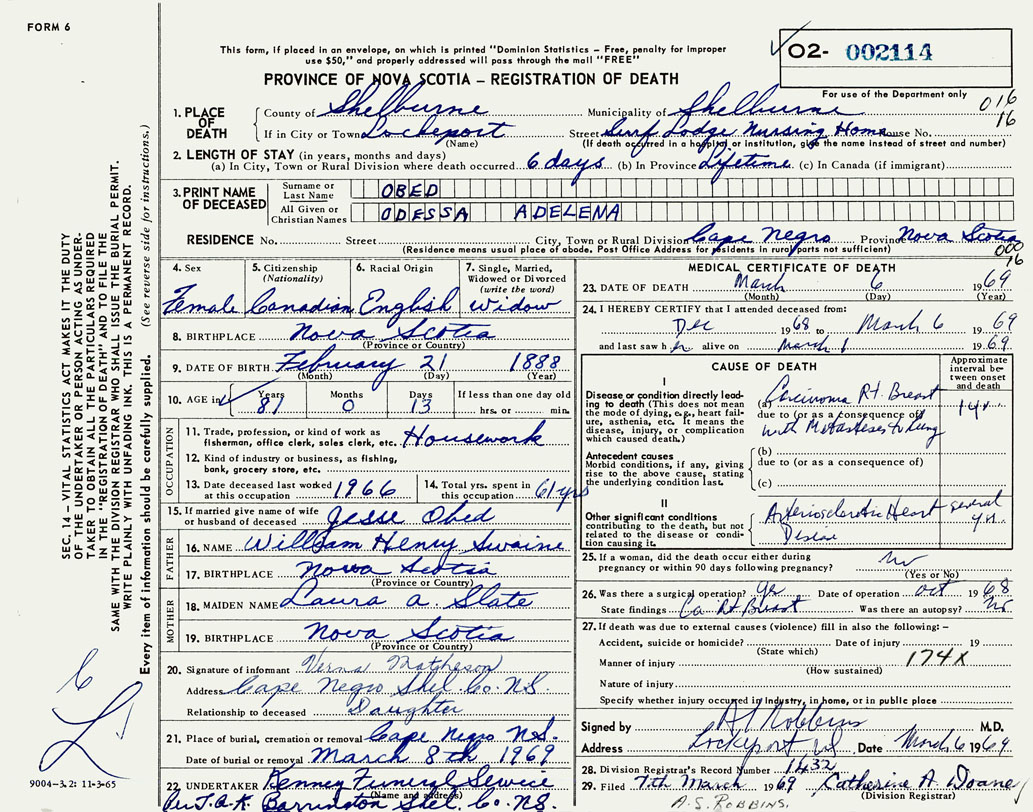 FORM 6
This form, if placed in an envelope, on which is printed "Dominion Statistics – Free, penalty for improper
use $50," and properly addressed will pass through the mail "FREE"
PROVINCE OF NOVA SCOTIA – REGISTRATION OF DEATH
O2- 002114
For use of the Department only
016
16
1. PLACE OF DEATH
County of Shelburne Municipality of Shelburne
If in City or Town Lockeport Street Surf Lodge Nursing Home House No.
(Name) (If death occurred in a hospital or institution, give the name instead of street and number)
2. LENGTH OF STAY (in years, months and days)
(a) In City, Town or Rural Division where death occurred 6 days (b) In Province Lifetime (c) In Canada (if immigrant)
3. PRINT NAME OF DECEASED
Surname or Last Name OBED
All Given or Christian Names ODESSA ADELENA
RESIDENCE No. Street City, Town or Rural Division Cape Negro Province Nova Scotia
(Residence means usual place of abode. Post Office Address for residents in rural parts not sufficient)
000
16
4. Sex Female
5. Citizenship (Nationality) Canadian
6. Racial Origin English
7. Single, Married, Widowed or Divorced (write the word) Widow
8. BIRTHPLACE Nova Scotia
(Province or Country)
9. DATE OF BIRTH February 21 1888
(Month) (Day) (Year)
10. AGE in Years Months Days If less than one day old
81 0 13 hrs. or min.
OCCUPATION
11. Trade, profession, or kind of work as
fisherman, office clerk, sales clerk, etc. Housework
12. Kind of industry or business, as fishing,
bank, grocery store, etc.
13. Date deceased last worked at this occupation 1966
14. Total yrs. spent in this occupation 61 yrs
15. If married give name of wife
or husband of deceased Jesse Obed
FATHER
16. NAME William Henry Swaine
17. BIRTHPLACE Nova Scotia
(Province or Country)
MOTHER
18. MAIDEN NAME Laura A. Slate
19. BIRTHPLACE Nova Scotia
(Province or Country)
20. Signature of informant Verna Matheson
Address Cape Negro Shel. Co. N.S.
Relationship to deceased Daughter
21. Place of burial, cremation or removal Cape Negro N.S.
Date of burial or removal March 8th 1969
22. UNDERTAKER Kenney Funeral Service
(Name and address)
Barrington Shel. Co. N.S.
MEDICAL CERTIFICATE OF DEATH
23. DATE OF DEATH March 6 1969
(Month) (Day) (Year)
24. I HEREBY CERTIFY that I attended deceased from:
Dec 1968 to March 6 1969
and last saw her alive on March 1 1969
CAUSE OF DEATH
Approximate interval between onset and death
I
Disease or condition directly leading to death (This does not mean
the mode of dying, e.g., heart failure, asthenia, etc. It means the
disease, injury, or complication
which caused death.)
(a) Carcinoma Rt. Breast
due to (or as a consequence of)
with Metasteses to lung
1 yr.
Antecedent causes
Morbid conditions, if any, giving
rise to the above cause, stating
the underlying condition last.
(b)
due to (or as a consequence of)
(c)
II
Other significant conditions
contributing to the death, but not
related to the disease or condition causing it.
Arteriosclerotic Heart
Disease
several
yr.
25. If a woman, did the death occur either during
pregnancy or within 90 days following pregnancy? No
(Yes or No)
26. Was there a surgical operation? Yes Date of operation Oct 1968
State findings Ca Rt Breast Was there an autopsy? No
27. If death was due to external causes (violence) fill in also the following: –
Accident, suicide or homicide? Date of injury 19
(State which)
Manner of injury 174X
(How sustained)
Nature of injury
Specify whether injury occurred in Industry, in home, or in public place
Signed by Robbins M.D.
Address Lockeport NS Date March 6 1969
28. Division Registrar's Record Number 1432
29. Filed 7th March 1969 Catherine A. Doane
(Division Registrar)
A.S. ROBBINS.
SEC. 14 – VITAL STATISTICS ACT MAKES IT THE DUTY
OF THE UNDERTAKER OR PERSON ACTING AS UNDER-
TAKER TO OBTAIN ALL THE PARTICULARS REQUIRED
IN THE "REGISTRATION OF DEATH" AND TO FILE THE
SAME WITH THE DIVISION REGISTRAR WHO SHALL ISSUE THE BURIAL PERMIT.
WRITE PLAINLY WITH UNFADING INK. THIS IS A PERMANENT RECORD.
Every item of information should be carefully supplied. (See reverse side for instructions.)
9004-3.2: 11-3-65